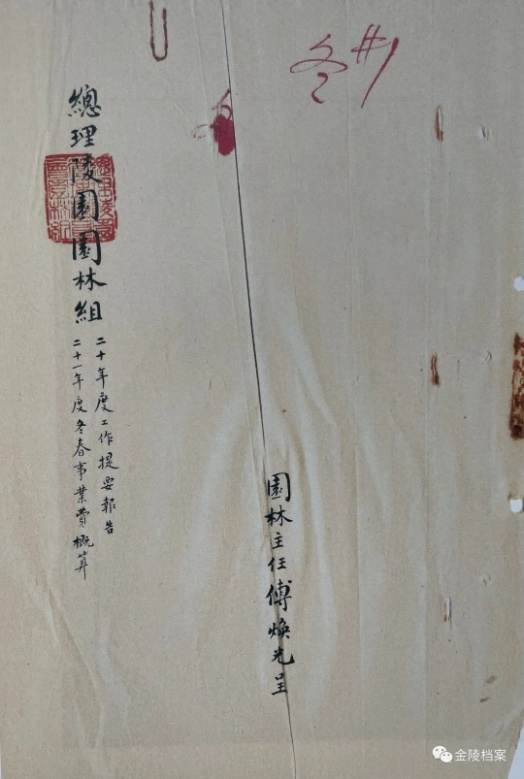 冬#1
園林主任傅煥光呈
總理陵園園林組
二十年度工作提要報告
二十一年度冬春事業費概算
金陵档案